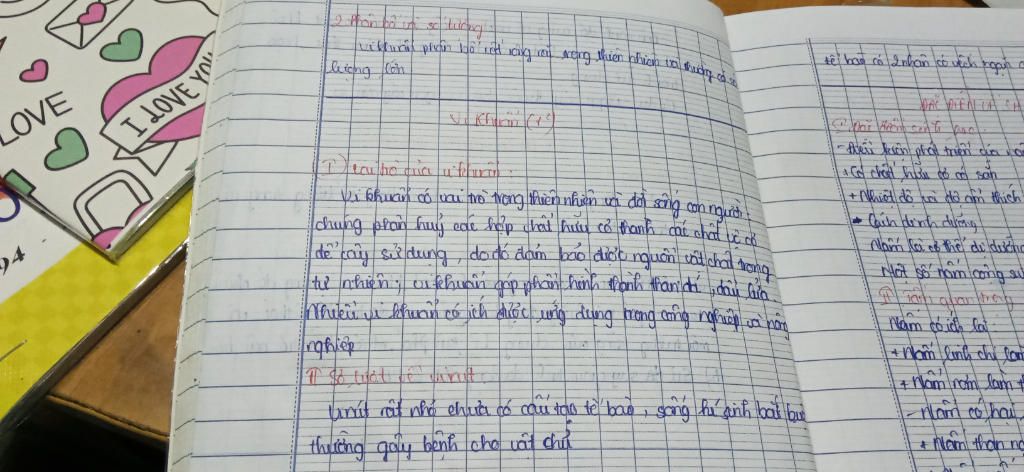 LOVE
I LOVE YOU
94
2. Phân bố và số lượng:
Vi khuẩn phân bố rất rộng rãi trong thiên nhiên và thường có số
lượng lớn
Vi khuẩn (t²)
I) vai trò của vi khuẩn:
Vi khuẩn có vai trò trong thiên nhiên và đời sống con người:
chúng phân huỷ các hợp chất hữu cơ thành các chất vô cơ
để cây sử dụng, do đó đảm bảo được nguồn vật chất trong
tự nhiên; vi khuẩn góp phần hình thành than đá, dầu lửa.
Nhiều vi khuẩn có ích được ứng dụng trong công nghiệp và nông
nghiệp
II Sơ lược về virut
Virut rất nhỏ chưa có cấu tạo tế bào, sống kí sinh bắt buộc
thường gây bệnh cho vật chủ
tế bào có 2 nhân có vách ngăn
- Điều kiện phát triển của
+ Có chất hữu cơ có sẵn
+ Nhiệt độ và độ ẩm thích
- Cách dinh dưỡng
Một số nấm cộng
II Tầm quan trọng
Nấm có ích lợi:
+ Nấm linh chi làm
+ Nấm rơm làm
- Nấm có hại
+ Nấm than